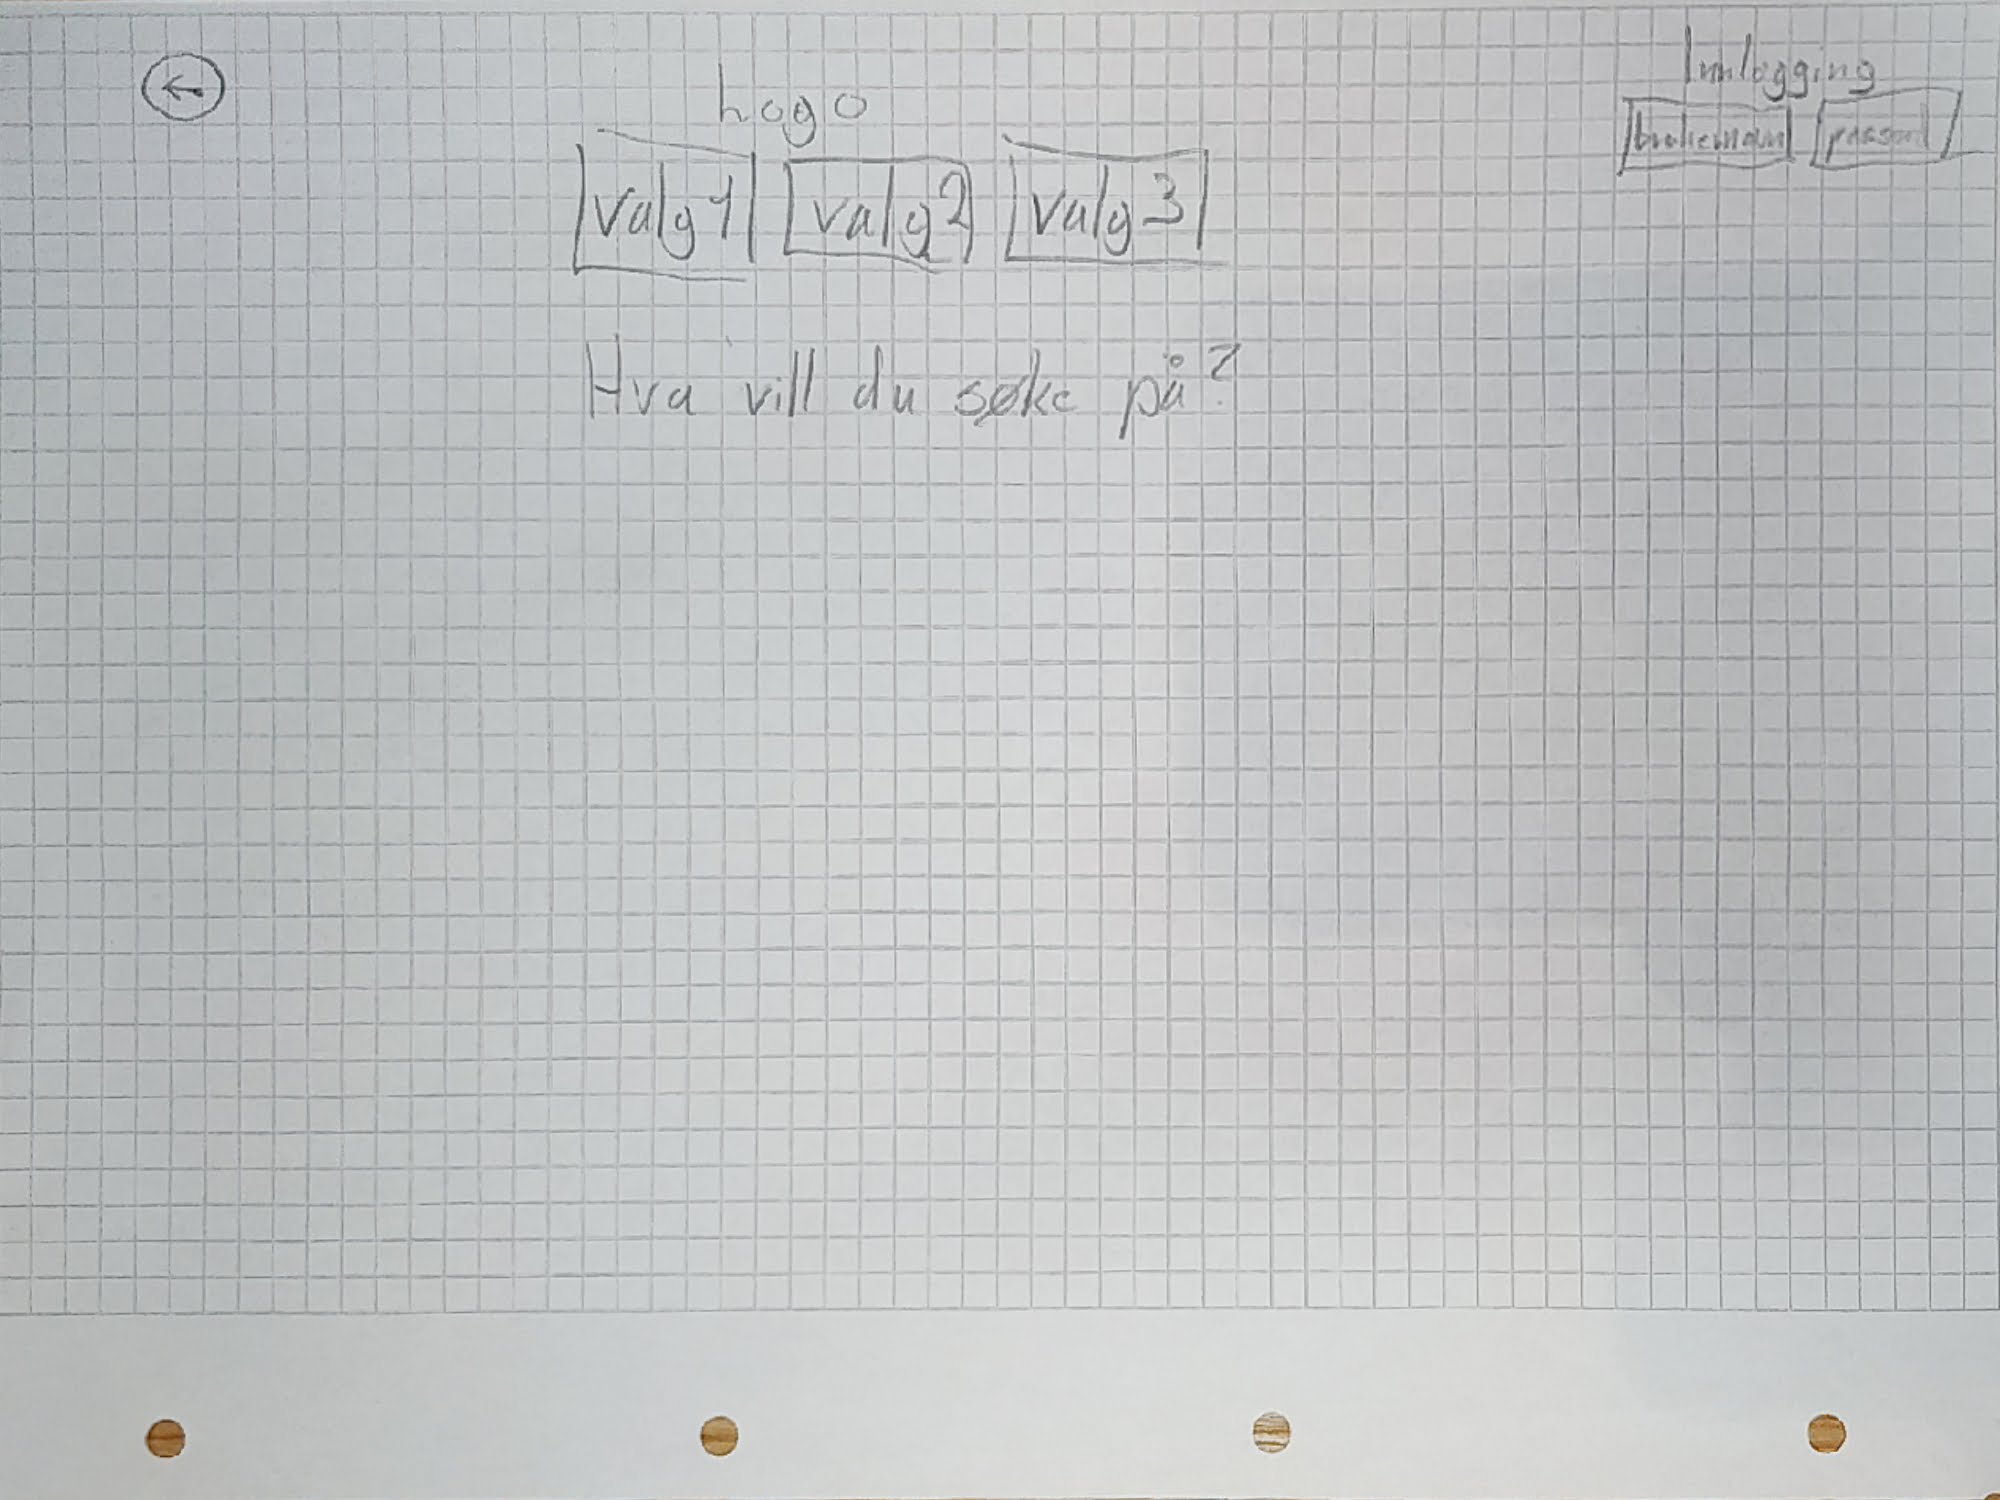 Innlogging
Logo
brukernavn passord
valg 1 valg 2 valg 3
Hva vill du søke på?